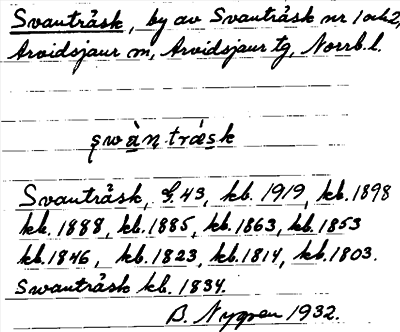 Svanträsk, by av Svanträsk nr 1 och 2,
Arvidsjaur sn, Arvidsjaur tg, Norrb. l.
swàn trǽsk
Svanträsk, G. 43, kb. 1919, kb. 1898
kb. 1888, kb. 1885, kb. 1863, kb. 1853
kb. 1846, kb. 1823, kb. 1814, kb. 1803.
Swanträsk kb. 1834.
B. Nygren 1932.